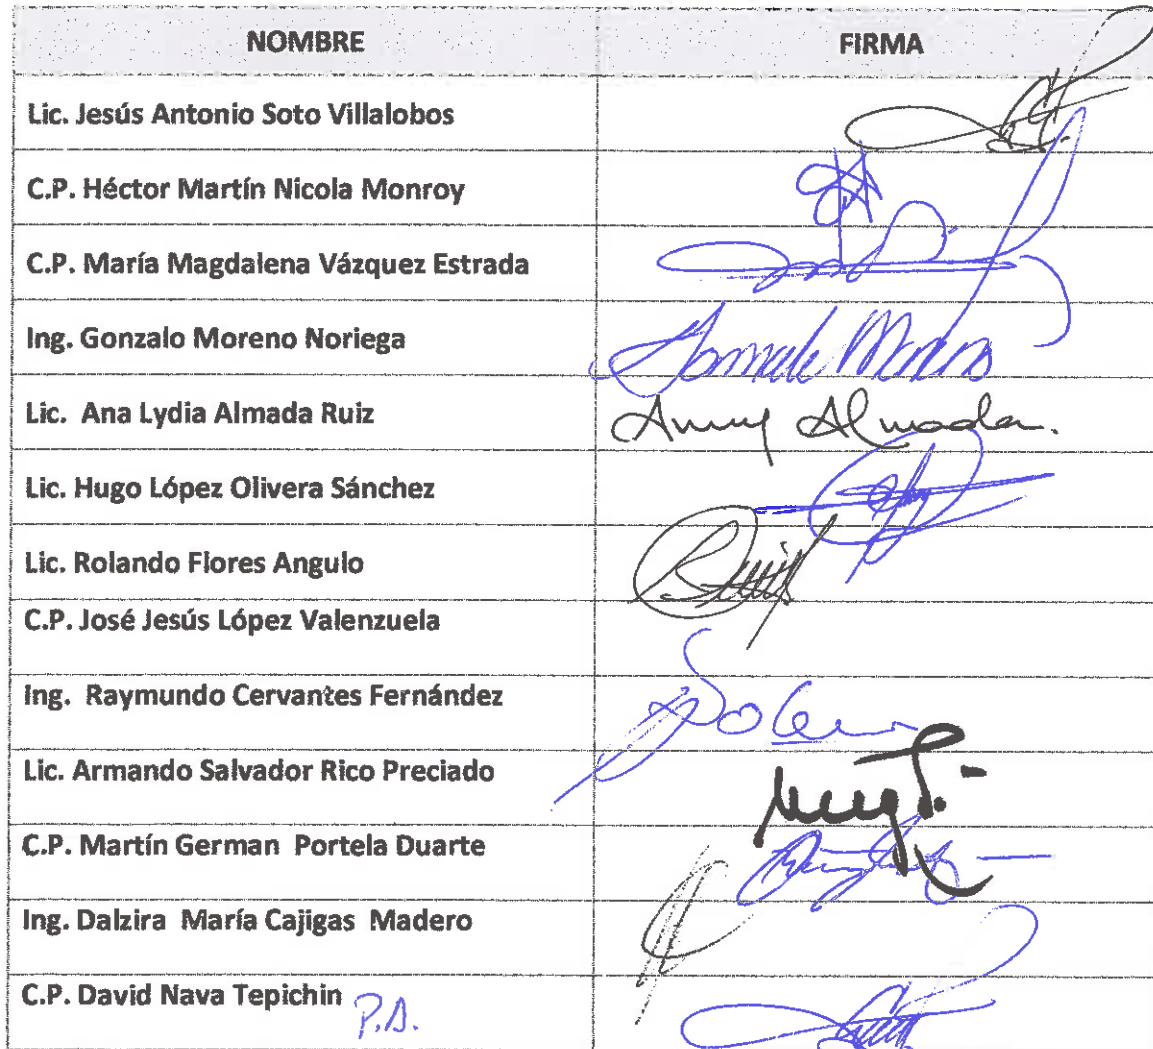 NOMBRE FIRMA
Lic. Jesús Antonio Soto Villalobos
C.P. Héctor Martín Nicola Monroy
C.P. María Magdalena Vázquez Estrada
Ing. Gonzalo Moreno Noriega
Lic. Ana Lydia Almada Ruiz Almada.
Lic. Hugo López Olivera Sánchez
Lic. Rolando Flores Angulo
C.P. José Jesús López Valenzuela
Ing. Raymundo Cervantes Fernández
Lic. Armando Salvador Rico Preciado
C.P. Martín German Portela Duarte
Ing. Dalzira María Cajigas Madero
C.P. David Nava Tepichin P.A.